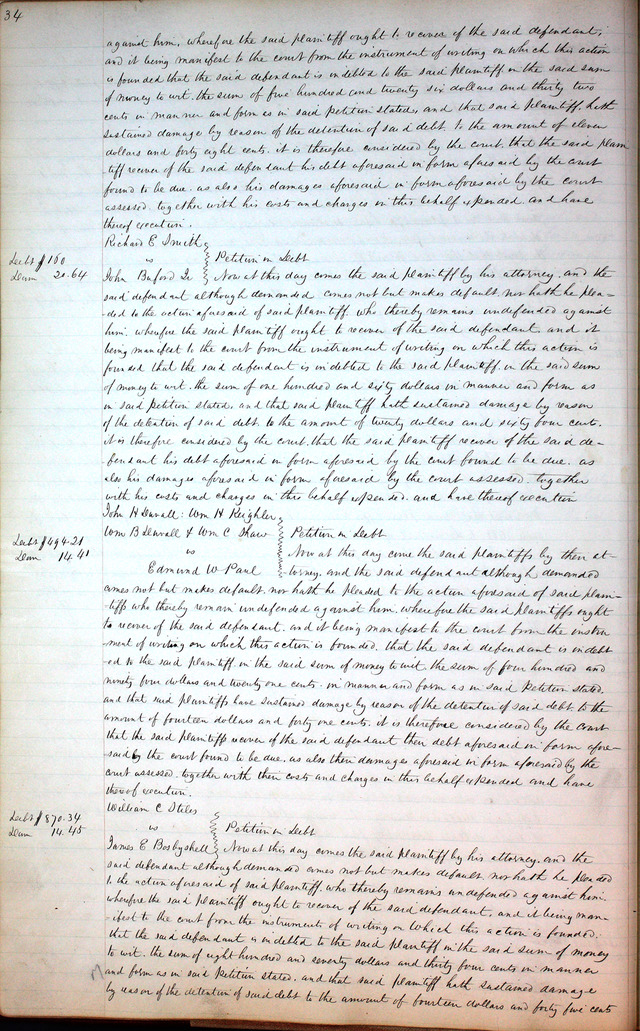 34
against him, wherefore the said plaintiff ought to recover of the said defendant,
and it being manifest to the court from the instrument of writing on which this action
is founded that the said defendant is indebted to the said plaintiff in the said sum
of money to wit. the sum of five hundred and twenty six dollars and thirty two
cents in manner and form as in said petition stated, and that said plaintiff hath
sustained damage by reason of the detention of said debt to the amount of eleven
dollars and forty eight cents. it is therefore considered by the court that the said plain
tiff recover of the said defendant his debt aforesaid in form aforesaid by the court
found to be due. as also his damages aforesaid in form aforesaid by the court
assessed. together with his costs and charges in this behalf expended and have
thereof execution.
Richard E Smith
Debt $160
vs
Petition in Debt
Dam 20.64
John Buford Jr
Now at this day comes the said plaintiff by his attorney. and the
said defendant although demanded comes not but makes default. nor hath he plea-
ded to the action aforesaid of said plaintiff. who thereby remains undefended against
him. wherefore the said plaintiff ought to recover of the said defendant. and it
being manifest to the court from the instrument of writing on which this action is
founded that the said defendant is indebted to the said plaintiff. in the said sum
of money to wit. the sum of one hundred and sixty dollars in manner and form as
in said petition stated, and that said plaintiff hath sustained damage by reason
of the detention of said debt to the amount of twenty dollars and sixty four cents.
it is therefore considered by the court, that the said plaintiff recover of the said de-
fendant his debt aforesaid in form aforesaid by the court found to be due. as
also his damages aforesaid in form aforesaid by the court assessed. together
with his costs and charges in this behalf expensed. and have thereof execution
John H Dewall: Wm H Keighler
Wm B Dewall & Wm C Shaw
Petition in Debt
Debt $494.21
vs
Now at this day come the said plaintiffs by their at-
Dam 14.41
Edmund W Paul
torney. and the said defendant although demanded
comes not but makes default. nor hath he pleaded to the action aforesaid of said plain-
tiffs who thereby remain undefended against him. wherefore the said plaintiffs ought
to recover of the said defendant. and it being manifest to the court from the instru
ment of writing on which this action is founded. that the said defendant is indebt
ed to the said plaintiff. in the said sum of money to wit the sum of four hundred and
ninety four dollars and twenty one cents. in manner and form as in said petition stated.
and that said plaintiffs have sustained damage by reason of the detention of said debt to the
amount of fourteen dollars and forty one cents. it is therefore considered by the court
that the said plaintiffs recover of the said defendant their debt aforesaid in form afore-
said by the court found to be due. as also their damages aforesaid in form aforesaid by the
court assessed. together with their costs and charges in this behalf expended and have
thereof execution.
William C Stiles
Debt $870.34
vs
Petition in Debt
Dam 14.45
James E Bosbyshell
Now at this day comes the said plaintiff by his attorney. and the
said defendant although demanded comes not but makes default. nor hath he pleaded
to the action aforesaid of said plaintiff who thereby remains undefended against him.
wherefore the said plaintiff ought to recover of the said defendant, and it being man-
ifest to the court from the instruments of writing on which this action is founded.
that the said defendant is indebted to the said plaintiff in the said sum of money
to wit. the sum of eight hundred and seventy dollars and thirty four cents in manner
and form as in said petition stated. and that said plaintiff hath sustained damage
by reason of the detention of said debt to the amount of fourteen dollars and forty five cents